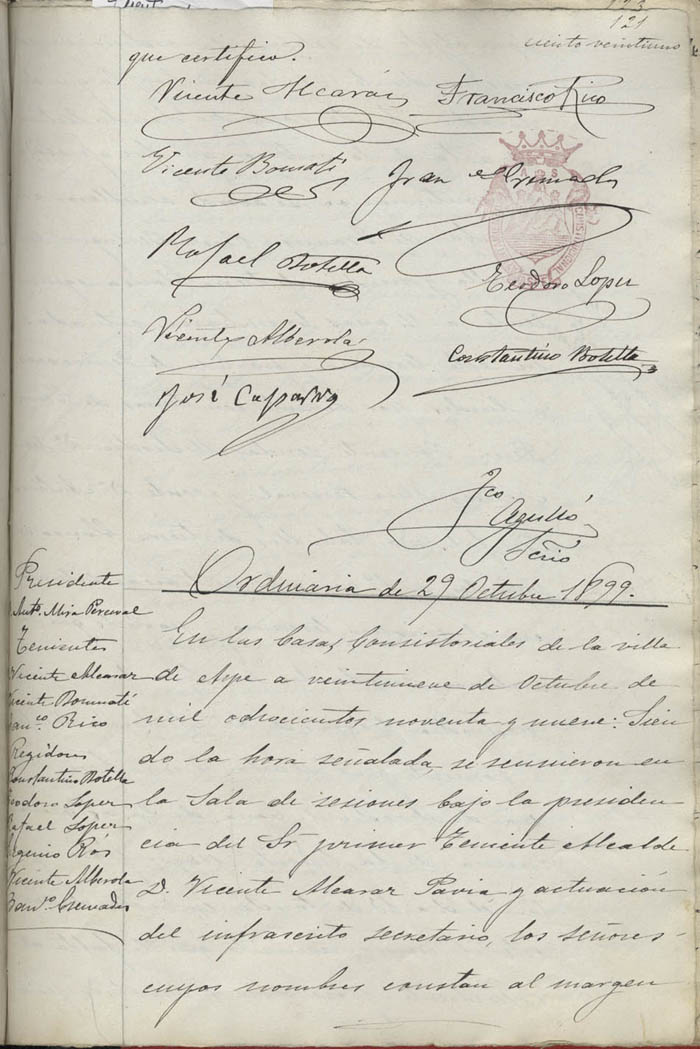 123
121
ciento veintiuno
que certifico.
Vicente Alcaráz Francisco Rico
Vicente Bomatí Fran Cremades
Rafael Botella
Teodoro Lopez
Vicente Alberola
Constantino Botella
José Caparros
Fco
Agulló
Scrio
Ordinaria de 29 Octubre 1899.
Presidente
Anto. Mira Perceval
Tenientes
Vicente Alcaraz
Vicente Bomatí
Franco Rico
Regidores
Constantino Botella
Teodoro Lopez
Rafael Lopez
Vicente Alberola
Cremades
En las Casas Consistoriales de la villa
de Aspe a veintinueve de Octubre de
mil ochocientos noventa y nueve: Sien
do la hora señalada, se reunieron en
la Sala de sesiones bajo la presiden-
cia del Sr primer Teniente Alcalde
D. Vicente Alcaraz Pavia y actuación
del infrascrito secretario, los señores
cuyos nombres constan al margen